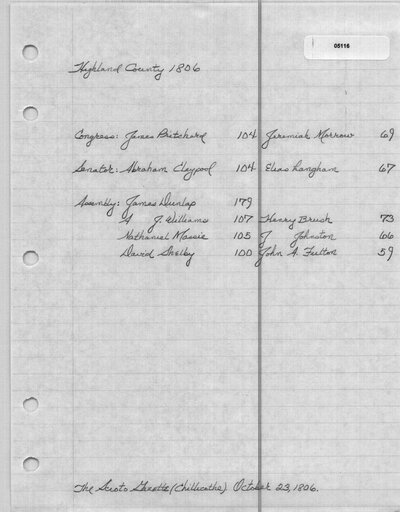 05116
Highland County 1806
Congress: James Pritchard 104 Jeremiah Morrow 69
Senator: Abraham Claypool 104 Elias Langham 67
Assembly: James Dunlap 179
A J. Williams 107 Henry Brush 73
Nathaniel Massie 105 J Johnston 66
David Shelby 100 John A. Fulton 59
The Scioto Gazette (Chillicothe) October 23, 1806.